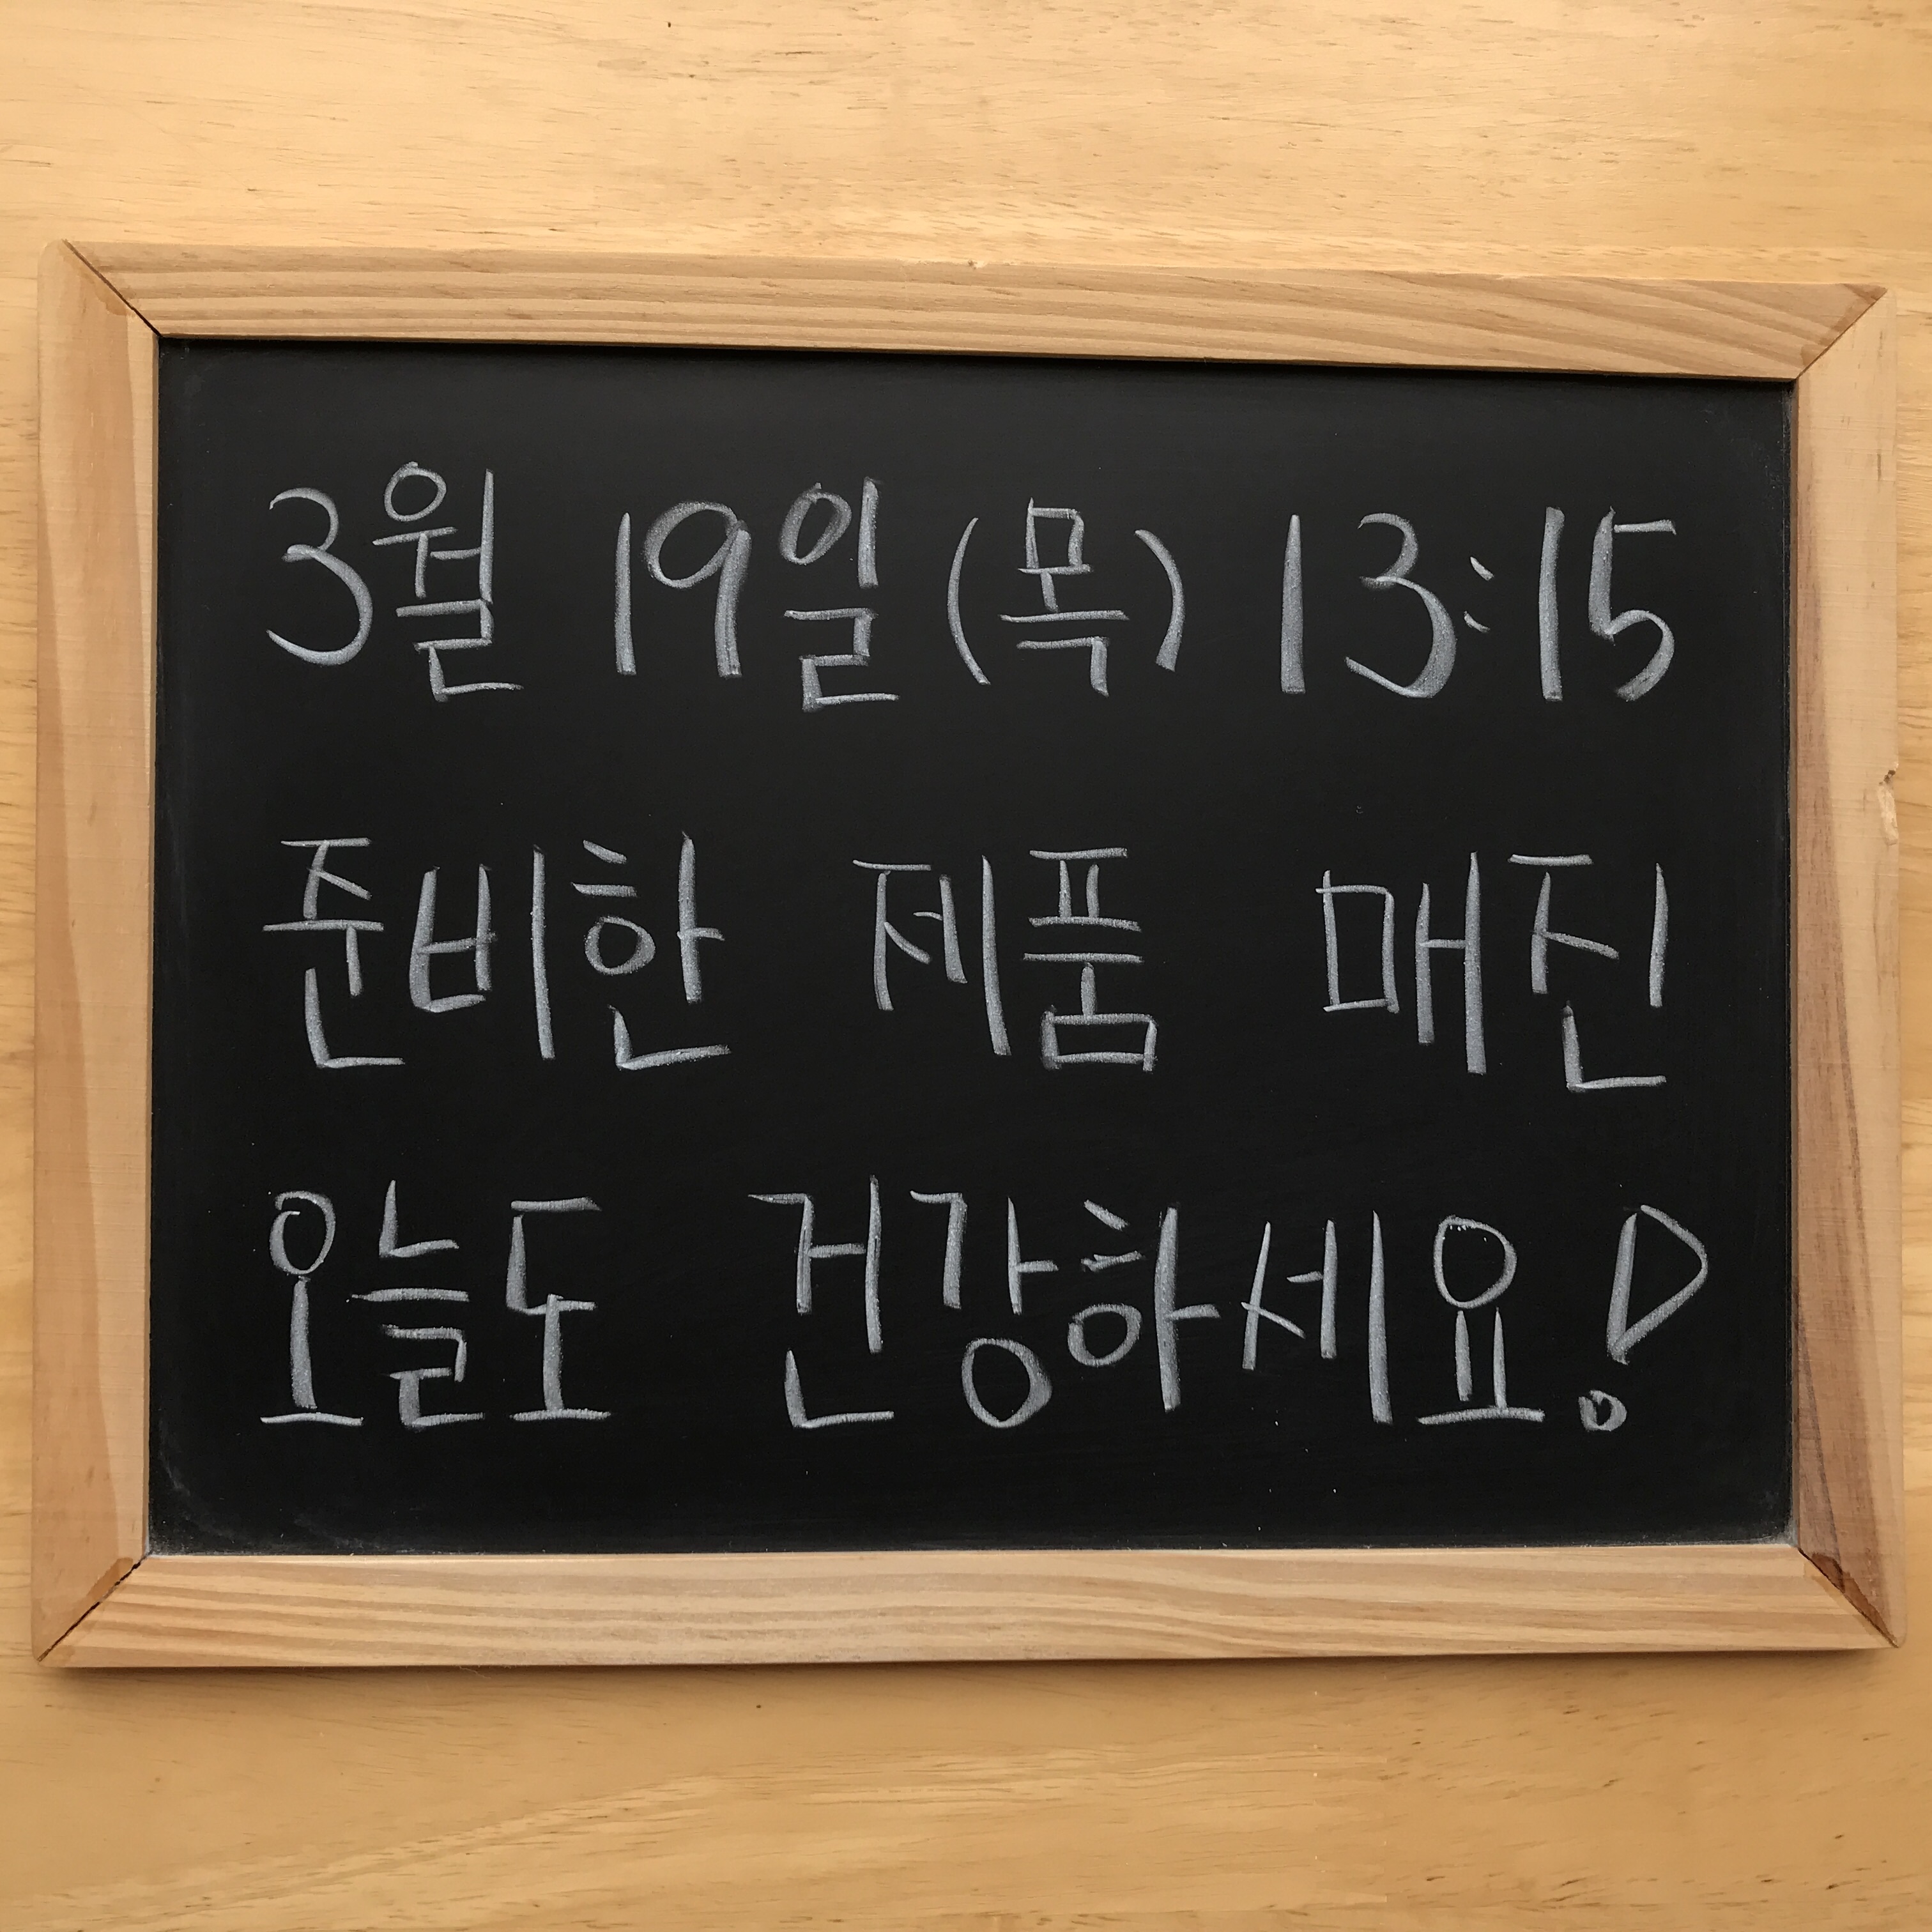 3월 19일(목) 13:15
준비한 제품 매진
오늘도 건강하세요!